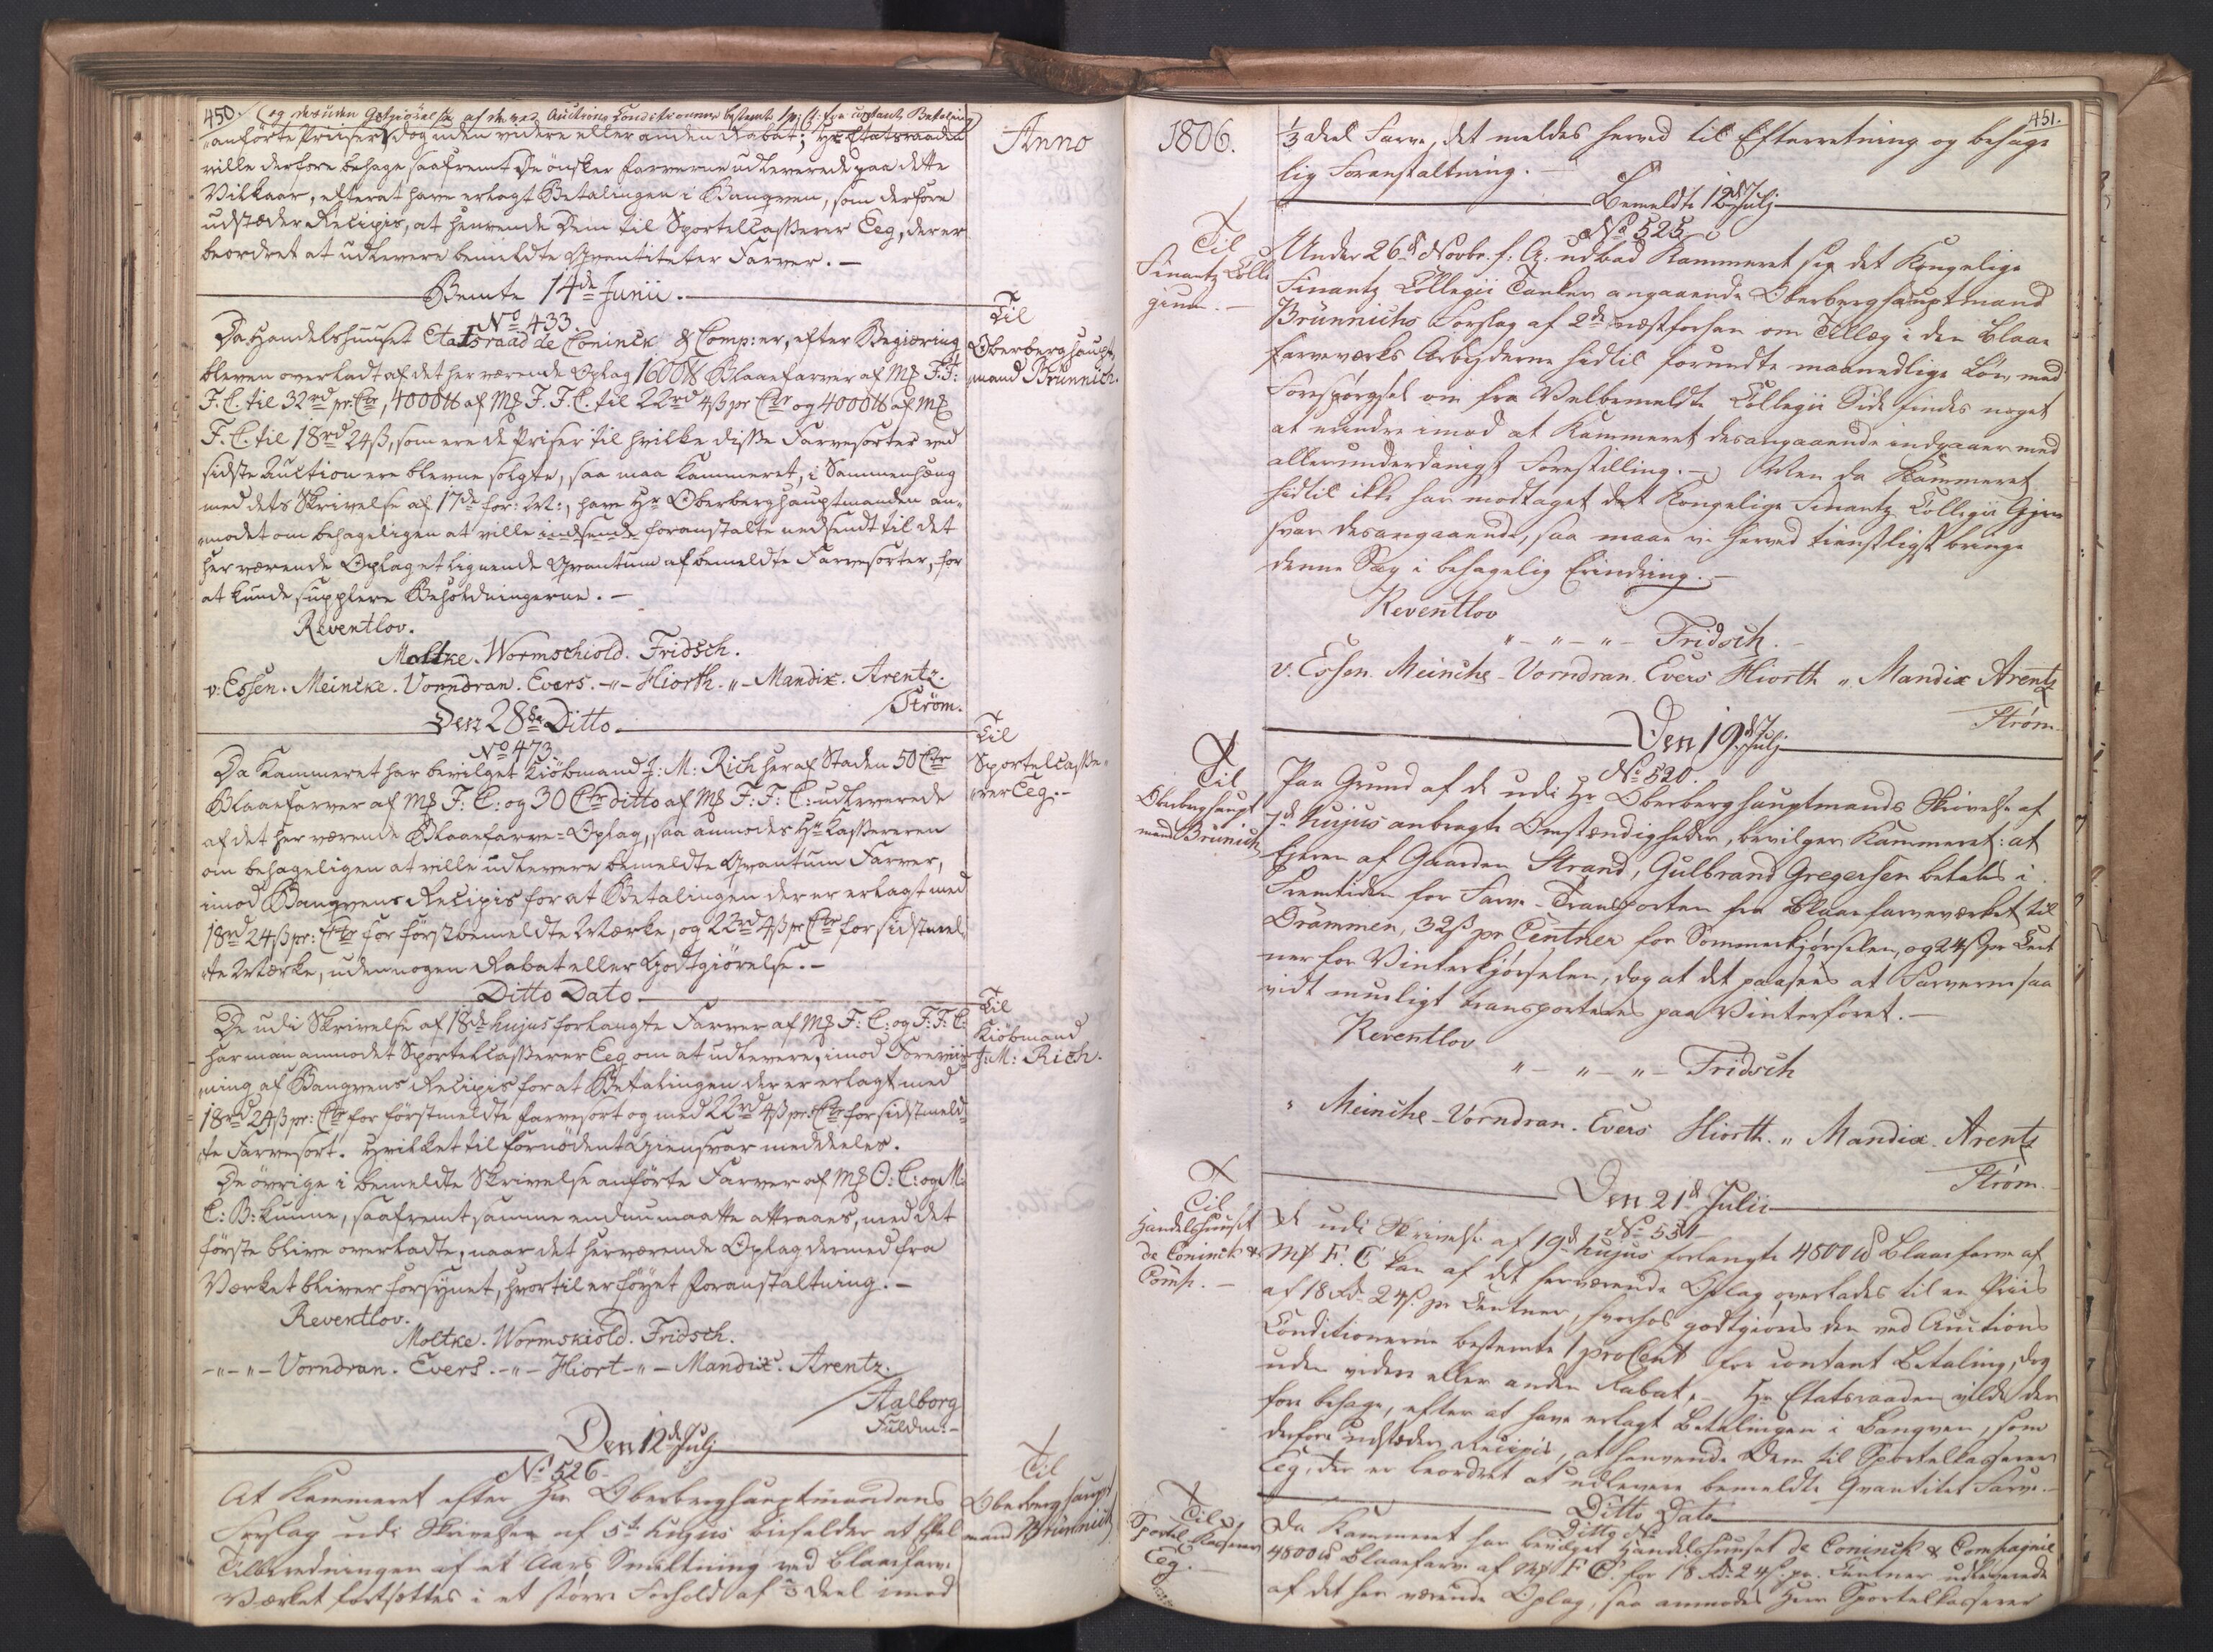 450.
(og desuden Godtgiörelse af de ved Auctions Conditionerne bestemte 1 pCt: for contant Betaling)
anförte Priiser, dog uden videre eller anden Rabat; Hr Etatsraaden
ville derfore behage saafremt De önsker Farverne udleverede paa dette
Vilkaar, efterat have erlagt Betalingen i Banqven, som derfore
udstæder Recipis, at henvende Dem til Sportelcasserer Eeg, der er
beordret at udlevere bemeldte Qvantiteter Farver. —
Anno
Bemte 14de Junii.
No 433.
Til
Oberberghaupt-
mand Brünnich.
Da Handelshuuset Etatsraad de Coninck & Comp: er, efter Begiæring
bleven overladt af det herværende Oplag 1600 ℔ Blaaefarver af Mk F. F.
F. C. til 32rd pr. Ctr, 4000 ℔ af Mk F. F. C. til 22rd 4ß pr Ctr og 4000 ℔ af Mk
F. C. til 18rd 24ß, som ere de Priser til hvilke disse Farvesorter ved
sidste Auction ere blevne solgte, saa maa Kammeret, i Sammenhæng
med dets Skrivelse af 17de for: M:, have Hr Oberberghauptmanden an-
modet om behageligen at ville indsende foranstalte nedsendt til det
herværende Oplag et lignende Qvantum af bemeldte Farvesorter, for
at kunde supplere Beholdningerne. —
Reventlov.
Moltke. Wormschiold. Fridsch.
v: Essen. Meincke. Vorndran. Evers. -"- Hiorth. -"- Mandix. Arentz.
Ström.
Den 28de Ditto.
No 473.
Til
Sportelcasse-
rer Eeg. —
Da Kammeret har bevilget Kiöbmand J: M: Rich her af Staden 50 Ctr
Blaaefarver af Mk F: C: og 30 Ctr ditto af Mk F: F: C: udleverede
af det herværende Blaaefarve-Oplag, saa anmodes Hr Kassereren
om behageligen at ville udlevere bemeldte Qvantum Farver,
imod Banqvens Recipis for at Betalingen derer erlagt med
18rd 24ß pr: Ctr for förstbemeldte Mærke, og 22rd 4ß pr Ctr for sidstmel-
te Mærke, uden nogen Rabat eller Godtgiörelse. —
Ditto Dato
Til
Kiöbmand
J: M: Rich.
De udi Skrivelse af 18de hujus forlangte Farver af Mk F: C: og F: F: C:
har man anmodet Sportelcasserer Eeg om at udlevere, imod Foreviis-
ning af Banqvens Recipis for at Betalingen derer erlagt med
18rd 24ß pr: Ctr for förstmeldte Farvesort og med 22rd 4ß pr: Ctr for sidstmeld-
te Farvesort. Hvilket til fornödent Giensvar meddeeles.
De övrige i bemeldte Skrivelse anförte Farver af Mk O: C: og M:
C: B: kunne, saafremt samme endnu maatte attraaes, med det
förste blive overladte, naar det herværende Oplag dermed fra
Værket bliver forsynet, hvortil er föyet Foranstaltning. —
Reventlov.
Moltke. Wormskiold. Fridsch.
-"- "- Vorndran. Evers. -"- Hiort -"- Mandix. Arentz.
Aalborg
Fuldm: —
Den 12de Julj
No 526.
Til
Oberberghaupt
mand Brünnich
At Kammeret efter Hrr Oberberghauptmandens
Forslag udi Skrivelse af 5te hujus bifalder at Tilberedningen af et Aars Smeltning ved Blaaefarve
Værket fortsættes i et större Forhold af ⅔ Deel imod
451.
1806.
⅓ deel Farve, det meldes herved til Efterretning og behage
lig Foranstaltning. —
Bemeldte 12de Julj
No 525
Til
Finantz Colle
gium. —
Under 26de Novbr. f. A. udbad Kammeret sig det Kongelige
Finantz Collegii Tanker angaaende Oberberghauptmand
Brünnichs Forslag af 2de næstforhen om Tillæg i den Blaae
farveværks Arbejderne hidtil forundte maanedlige Lön, med
Forespörgsel om fra Velbemeldte Collegii Side findes noget
at erindre imod at Kammeret desangaaende indgaaer med
allerunderdanigst Forestilling. — Men da Kammeret
hidtil ikke har modtaget det Kongelige Finantz Collegii Gjen
svar desangaaende, saa maae vi herved tienstligst bringe
denne Sag i behagelig Erindring. —
Reventlov
" - " - " - Fridsch. -
v. Essen. Meincke - Vorndran. Evers Hiorth " Mandix Arentz
Ström.
Den 19de Julj
No 520.
Til
Oberberghaupt
mand Brünich
Paa Grund af de udi Hr Oberberghauptmands Skrivelse af
7de hujus anbragte Omstændigheder, bevilger Kammeret: at
Ejeren af Gaarden Strand, Gulbrand Gregersen betales i
Fremtiden for Farve-Transporten fra Blaaefarveværket til
Drammen, 32ß pr Centner for Sommerkjörselen, og 24ß pr Cent
ner for Vinterkjörselen, dog at det paasees at Farverne saa
vidt mueligt transporteres paa Vinterföret. —
Reventlov
" - " - " - Fridsch
" Meincke - Vorndran. Evers Hiorth. " Mandix. Arentz
Ström.
Den 21de Julii
No 531
Til
Handelshuuset
de Coninck &
Comp. —
De udi Skrivelse af 19de hujus forlangte 4800 ℔ Blaaefarve af
Mk F. C kan af det herværende Oplag overlades til en Priis
af 18 Rd. 24ß. pr Centner, hvorhos godtgiöres den ved Auctions
Conditionerne bestemte 1 proCent for contant Betaling, dog
uden videre eller anden Rabat. — Hr Etatsraaden vilde der
fore behage, efter at have erlagt Betalingen i Banqven, som
derfore udstæder Recipis, at henvende Dem til Sportelkasserer
Eeg, der er beordret at udlevere bemeldte Qvantitet Farve. —
Ditto Dato
Ditto No
Til
Sportel Kasserer
Eeg. —
Da Kammeret har bevilget Handelshuuset de Coninck & Compagnie
4800 ℔ Blaaefarve af Mk F C. for 18 Rd. 24ß. pr. Centner udleverede
af det her værende Oplag, saa anmodes Herr Sportelkasserer